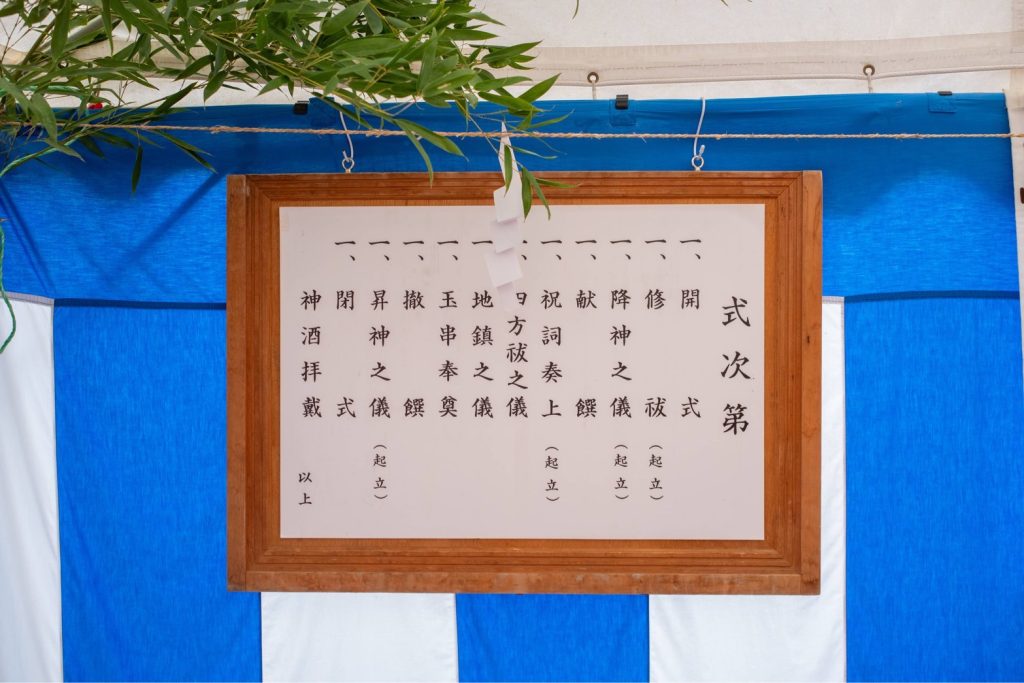 式次第
一、開式
一、修祓（起立）
一、降神之儀（起立）
一、献饌
一、祝詞奏上（起立）
一、四方祓之儀
一、地鎮之儀
一、玉串奉奠
一、撤饌
一、昇神之儀（起立）
一、閉式
神酒拝戴
以上